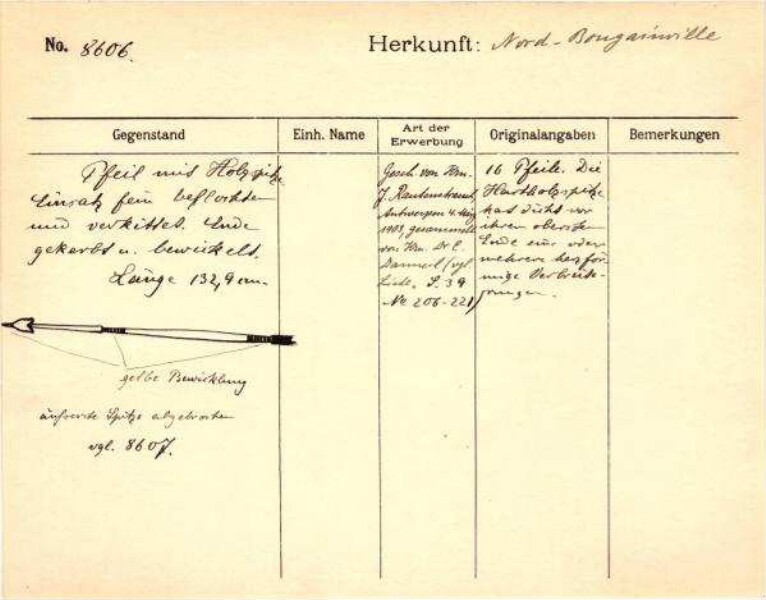 No. 8606.
Herkunft: Nord-Bougainville
Gegenstand
Einh. Name
Art der Erwerbung
Originalangaben
Bemerkungen
Pfeil mit Holzspitze
Einsatz fein beflochten
und verkittet. Ende
gekerbt u. bewickelt.
Länge 132,9 cm.
gelbe Bewicklung
äußerste Spitze abgebrochen
vgl. 8607.
Gesch. von Hrn.
J. Rautenstrauch,
Antwerpen 4. 
1903, gesammelt
von Hrn. Dr E.
(vgl.
Liste. S. 39
No 206-221)
16 Pfeile. Die
Hartholzspitze
hat dicht vor
ihrem obersten
Ende eine oder
mehrere herzför
mige Verbreite-
rungen.